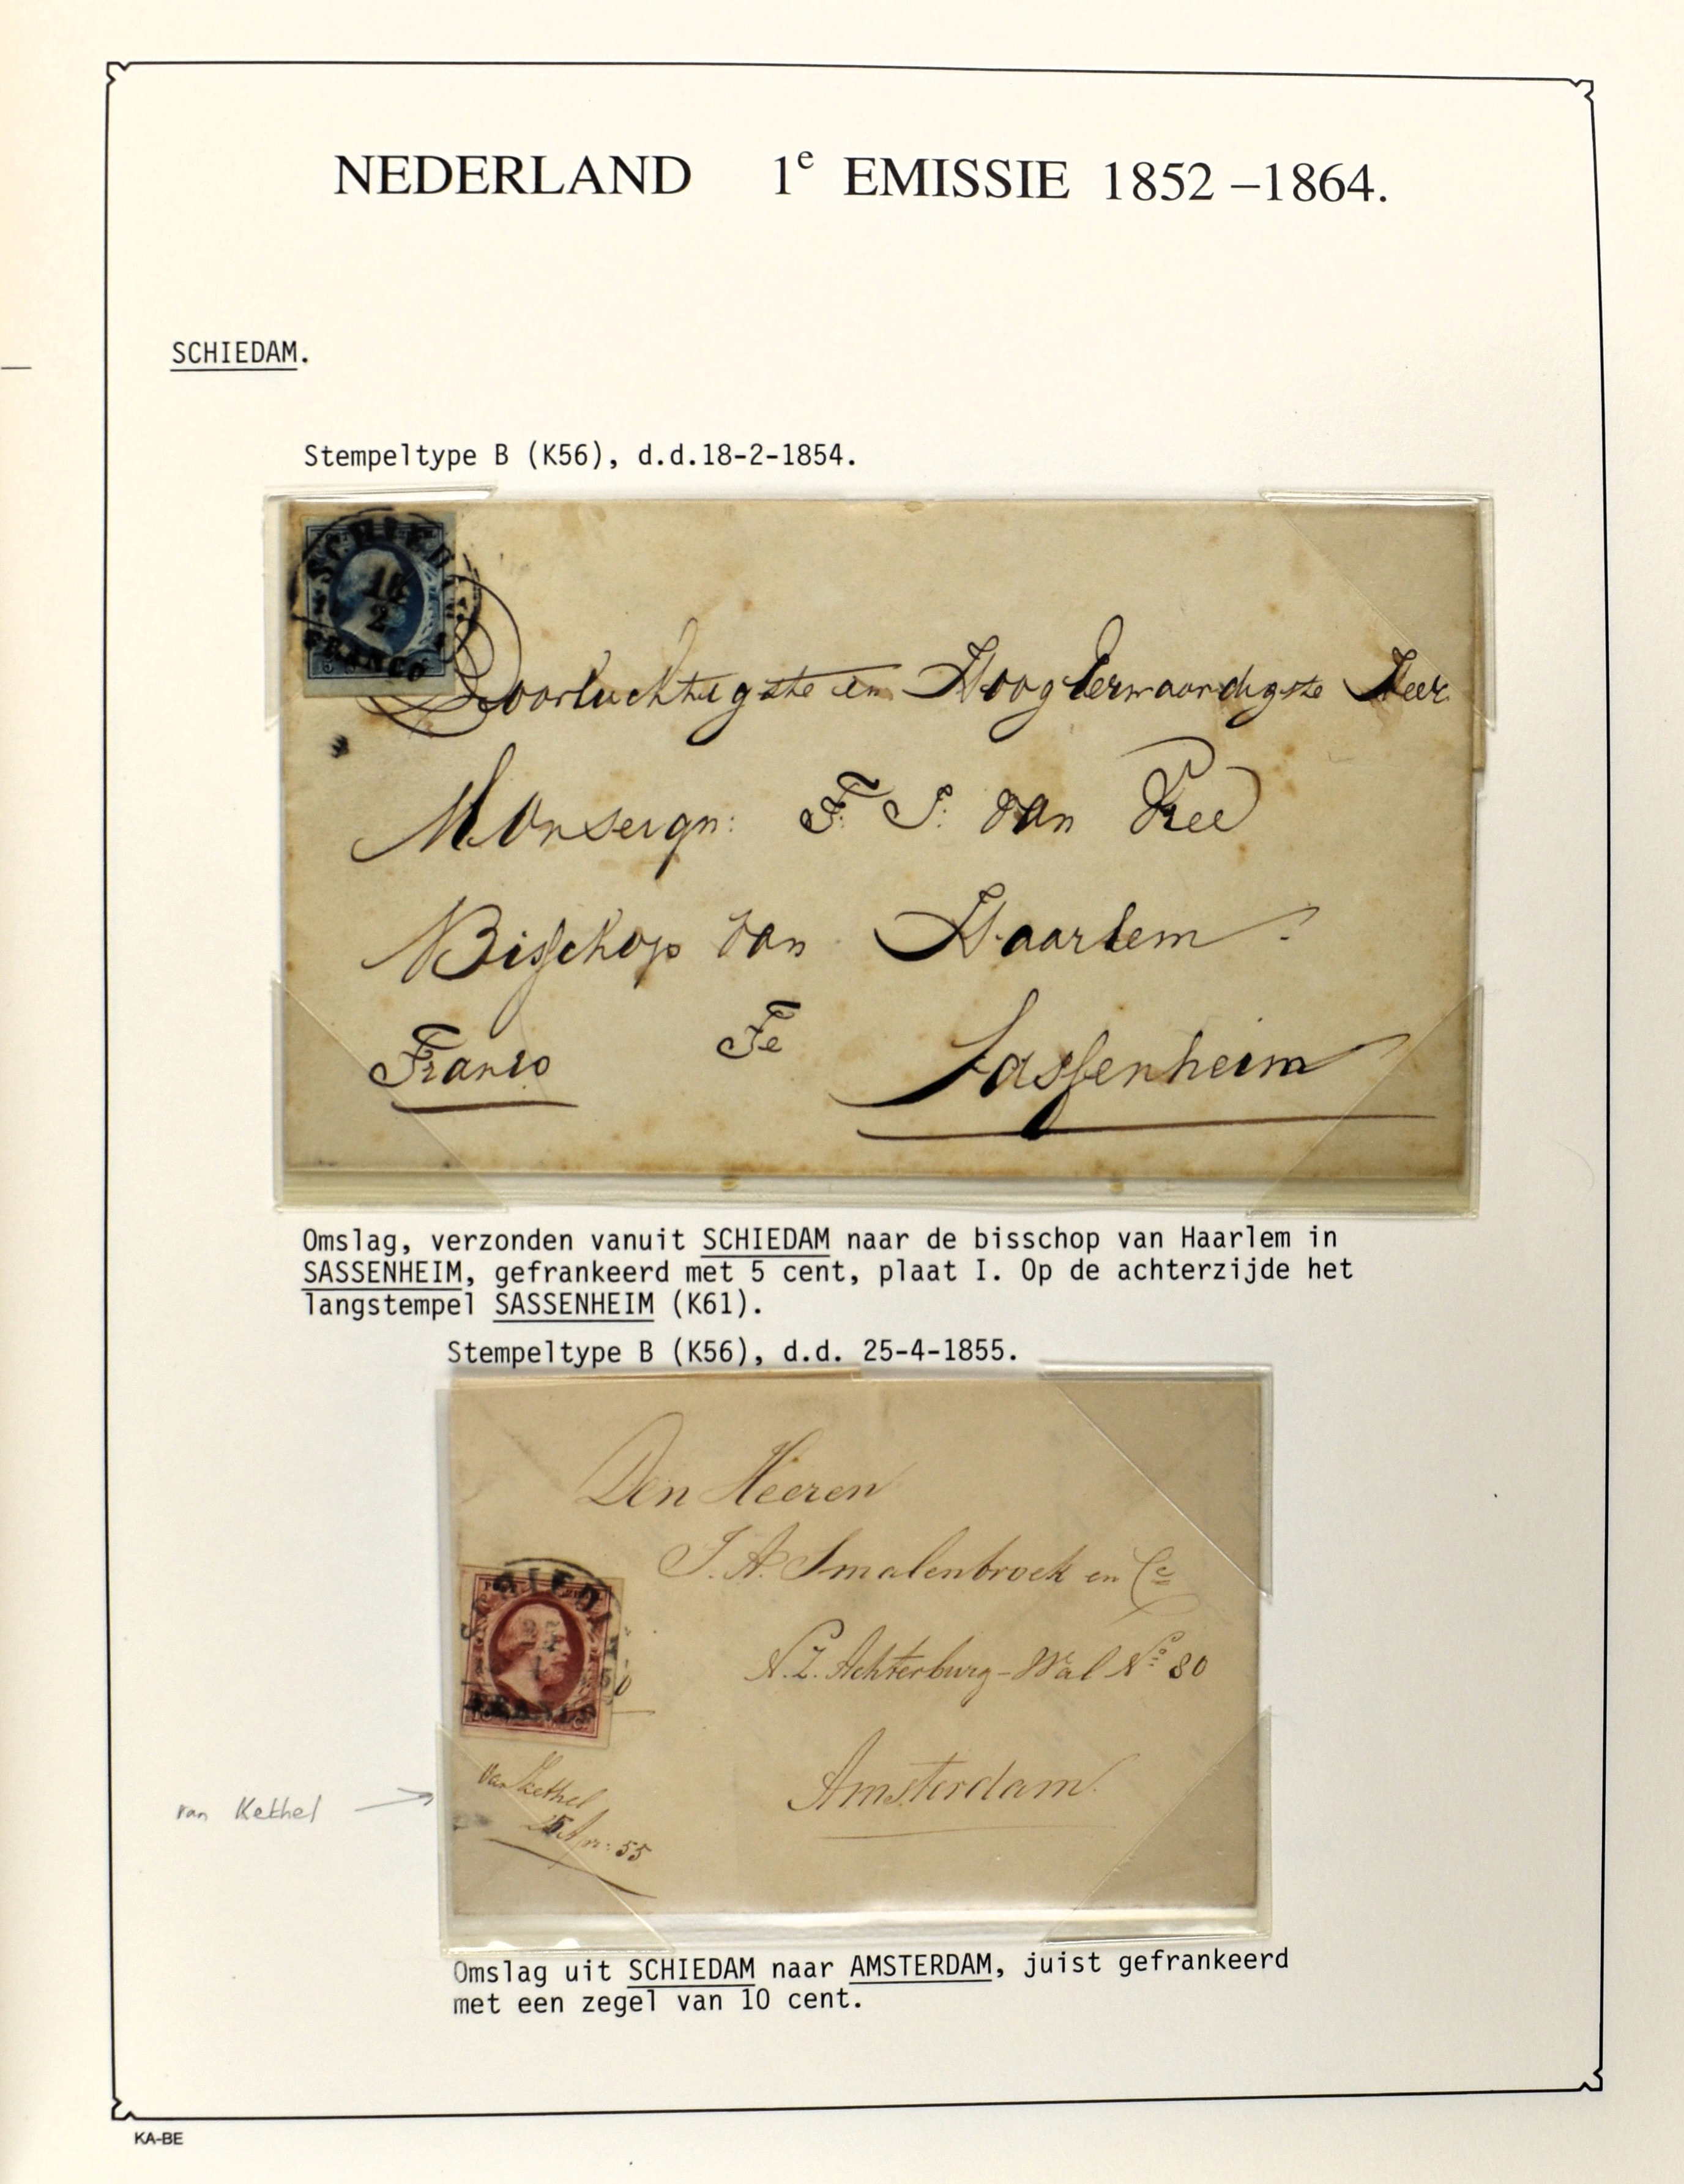 NEDERLAND 1e EMISSIE 1852 –1864.
SCHIEDAM.
Stempeltype B (K56), d.d.18-2-1854.
SCHIEDA
18
2
FRANCO
Doorluchtigste en HoogEerwaardigste Heer
Monseign: F. J. van Vree
Bisschop van Haarlem.
Franco Te Sassenheim
Omslag, verzonden vanuit SCHIEDAM naar de bisschop van Haarlem in
SASSENHEIM, gefrankeerd met 5 cent, plaat I. Op de achterzijde het
langstempel SASSENHEIM (K61).
Stempeltype B (K56), d.d. 25-4-1855.
Den Heeren
J. A. Smalenbroek en Ce
N.Z. Achterburg-Wal No 80
Amsterdam.
van Kethel
25 Apr: 55
van Kethel
Omslag uit SCHIEDAM naar AMSTERDAM, juist gefrankeerd
met een zegel van 10 cent.
KA-BE